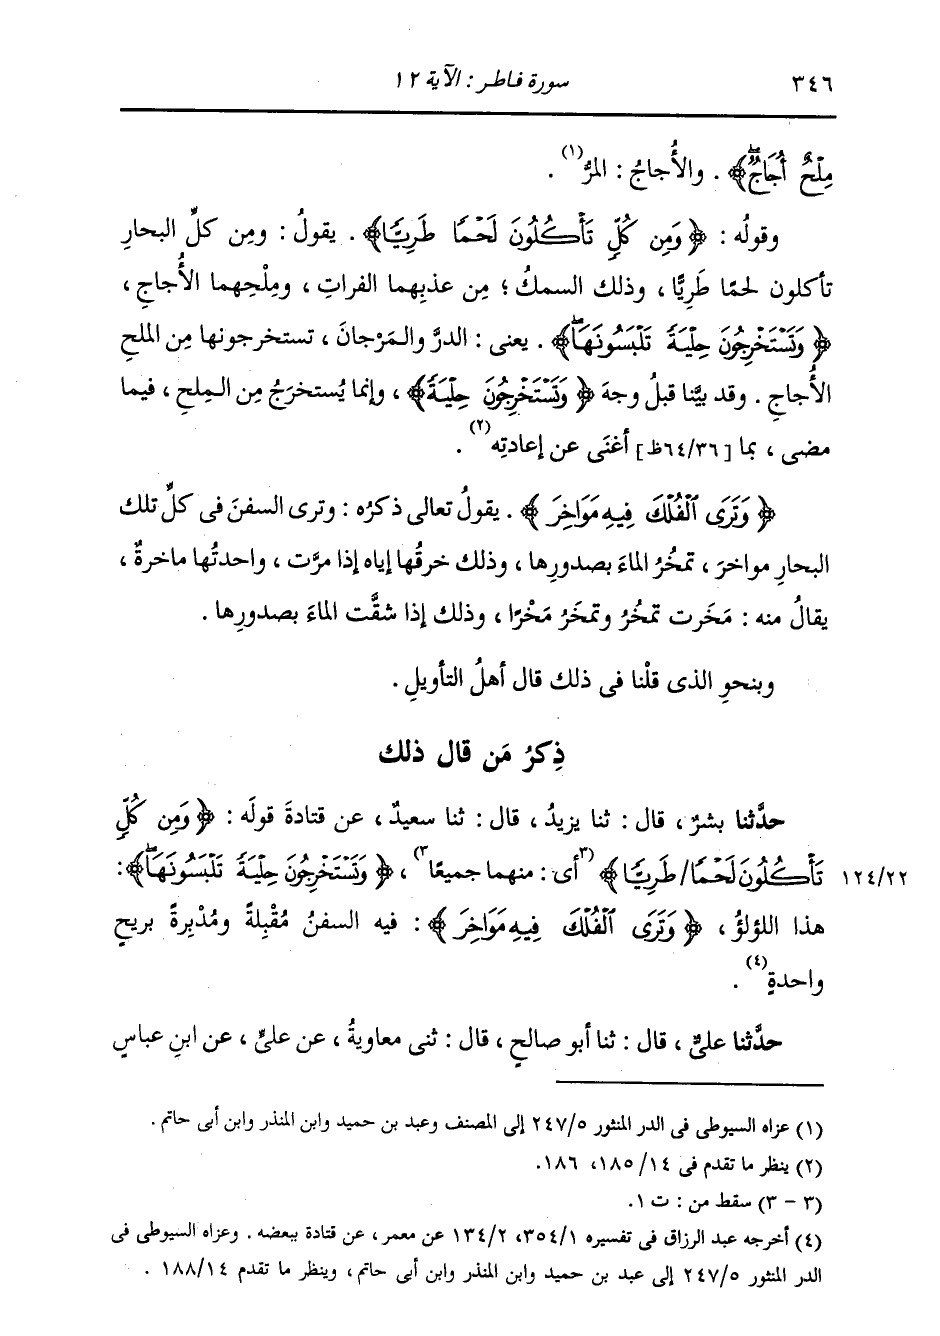 ٣٤٦ سورة فاطر : الآية ١٢
مِلْحٌ أُجَاجٌ ۖ﴾ . والأُجاجُ : المرُّ(١) .
وقولُه : ﴿ وَمِن كُلٍّ تَأْكُلُونَ لَحْمًا طَرِيًّا ﴾ . يقولُ : ومِن كلِّ البحارِ
تأكلون لحمًا طَرِيًّا ، وذلك السمكُ ؛ مِن عذبِهما الفراتِ ، ومِلْحِهما الأُجاجِ ،
﴿ وَتَسْتَخْرِجُونَ حِلْيَةً تَلْبَسُونَهَا ۖ﴾ . يعنى : الدرَّ والمَرْجانَ ، تستخرجونها مِن الملحِ
الأُجاجِ . وقد بيَّنا قبلُ وجهَ ﴿ وَتَسْتَخْرِجُونَ حِلْيَةً ﴾ ، وإنما يُستخرَجُ مِن المِلحِ ، فيما
مضى ، بما [٦٤/٣٦ظ] أغنَى عن إعادتِه(٢) .
﴿ وَتَرَى ٱلْفُلْكَ فِيهِ مَوَاخِرَ ﴾ . يقولُ تعالى ذكرُه : وترى السفنَ فى كلِّ تلك
البحارِ مواخرَ ، تمخُرُ الماءَ بصدورِها ، وذلك خرقُها إياه إذا مرَّت ، واحدتُها ماخرةٌ ،
يقالُ منه : مَخَرت تمخُرُ وتمخَرُ مَخْرًا ، وذلك إذا شقَّت الماءَ بصدورِها .
وبنحوِ الذى قلْنا فى ذلك قال أهلُ التأويلِ .
ذِكرُ مَن قال ذلك
حدَّثنا بشرٌ ، قال : ثنا يزيدُ ، قال : ثنا سعيدٌ ، عن قتادةَ قولَه : ﴿ وَمِن كُلٍّ
١٢٤/٢٢ تَأْكُلُونَ لَحْمًا/ طَرِيًّا ﴾ (٣)أى : منهما جميعًا(٣) ، ﴿ وَتَسْتَخْرِجُونَ حِلْيَةً تَلْبَسُونَهَا ۖ﴾ :
هذا اللؤلؤُ ، ﴿ وَتَرَى ٱلْفُلْكَ فِيهِ مَوَاخِرَ ﴾ : فيه السفنُ مُقْبِلةً ومُدْبِرةً بريحٍ
واحدةٍ(٤) .
حدَّثنا علىٌّ ، قال : ثنا أبو صالحٍ ، قال : ثنى معاويةُ ، عن علىٍّ ، عن ابنِ عباسٍ
(١) عزاه السيوطى فى الدر المنثور ٢٤٧/٥ إلى المصنف وعبد بن حميد وابن المنذر وابن أبى حاتم .
(٢) ينظر ما تقدم فى ١٨٥/١٤، ١٨٦.
(٣ - ٣) سقط من : ت ١.
(٤) أخرجه عبد الرزاق فى تفسيره ٣٥٤/١، ١٣٤/٢ عن معمر ، عن قتادة ببعضه . وعزاه السيوطى فى
الدر المنثور ٢٤٧/٥ إلى عبد بن حميد وابن المنذر وابن أبى حاتم ، وينظر ما تقدم ١٨٨/١٤ .